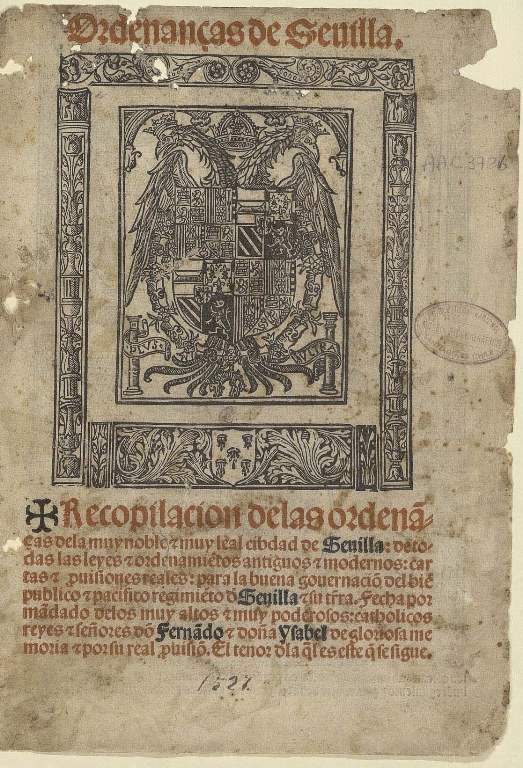 Ordenanças de Seuilla.
AAC 3726
PLVS
VLTRA
✠ Recopilacion delas ordenã-
ças dela muy noble ⁊ muy leal cibdad de Seuilla: de to-
das las leyes ⁊ ordenamiẽtos antiguos ⁊ modernos: car
tas ⁊ ꝓuisiones reales: para la buena gouernaciõ del biẽ
publico ⁊ pacifico regimiẽto ď Seuilla ⁊ su tr̃ra. Fecha por
mãdado delos muy altos ⁊ muy poderosos: catholicos
reyes ⁊ señores dõ Fernãdo ⁊ doña Ysabel de gloriosa me
moria ⁊ por su real ꝓuisiõ. El tenor ďla q̃l es este q̃ se sigue.
1527